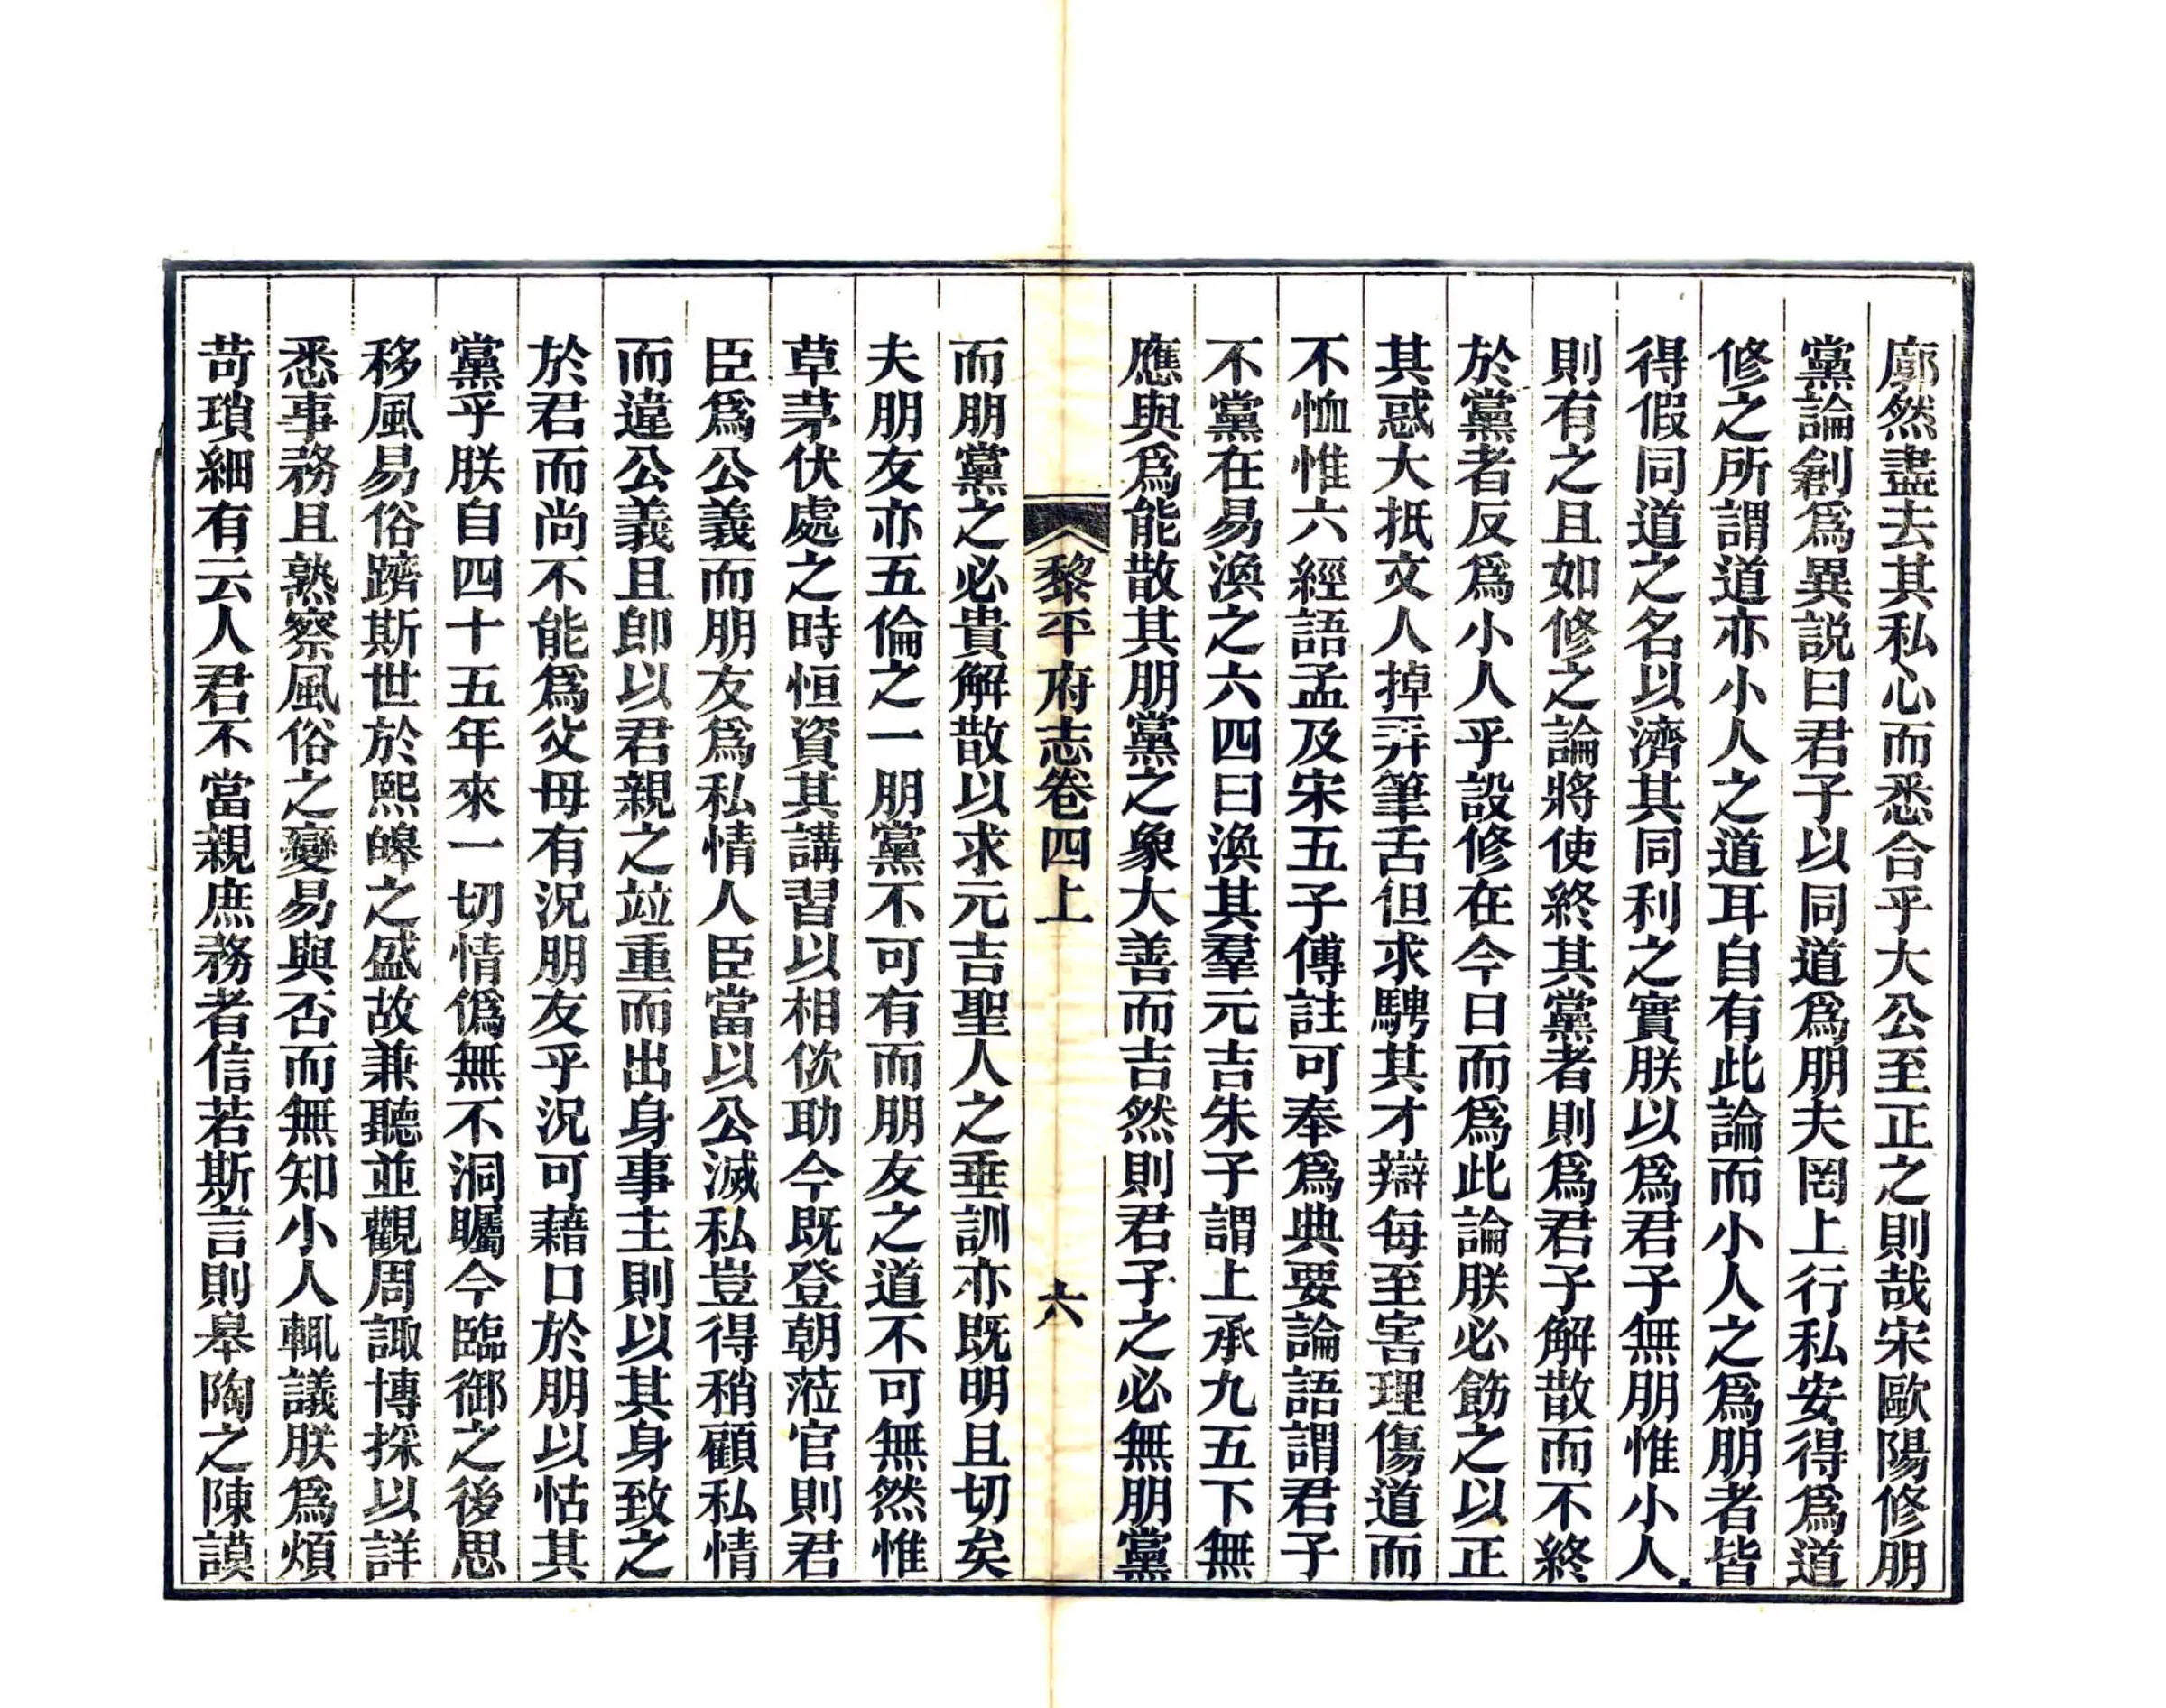 廓然盡去其私心而悉合乎大公至正之則哉宋歐陽修朋
黨論創爲異說曰君子以同道爲朋夫罔上行私安得爲道
修之所謂道亦小人之道耳自有此論而小人之爲朋者皆
得假同道之名以濟其同利之實朕以爲君子無朋惟小人
則有之且如修之論將使終其黨者則爲君子解散而不終
於黨者反爲小人乎設修在今日而爲此論朕必飭之以正
其惑大抵文人掉弄筆舌但求騁其才辯每至害理傷道而
不恤惟六經語孟及宋五子傳註可奉爲典要論語謂君子
不黨在易渙之六四曰渙其羣元吉朱子謂上承九五下無
應與爲能散其朋黨之象大善而吉然則君子之必無朋黨
黎平府志卷四上
六
而朋黨之必貴解散以求元吉聖人之垂訓亦既明且切矣
夫朋友亦五倫之一朋黨不可有而朋友之道不可無然惟
草茅伏處之時恒資其講習以相佽助今既登朝蒞官則君
臣爲公義而朋友爲私情人臣當以公滅私豈得稍顧私情
而違公義且卽以君親之竝重而出身事主則以其身致之
於君而尚不能爲父母有況朋友乎況可藉口於朋以怙其
黨乎朕自四十五年來一切情僞無不洞矚今臨御之後思
移風易俗躋斯世於熙皞之盛故兼聽並觀周諏博採以詳
悉事務且熟察風俗之變易與否而無知小人輒議朕爲煩
苛瑣細有云人君不當親庶務者信若斯言則皋陶之陳謨